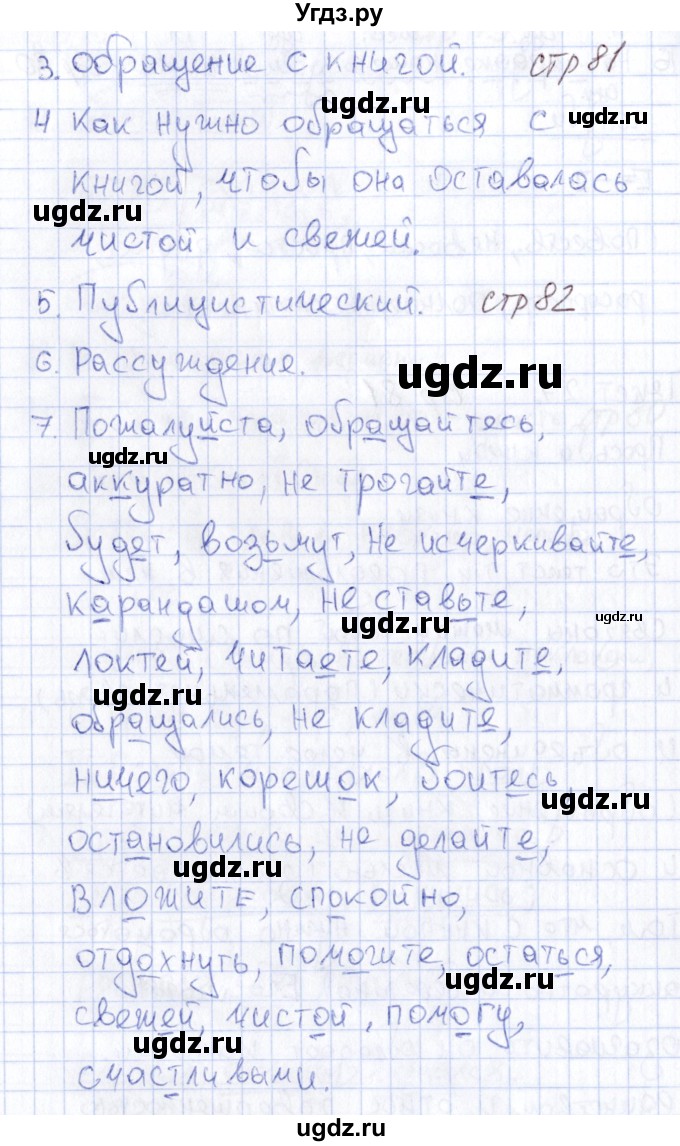 Угдз.ру
3. Обращение с книгой. стр 81
ugdz.ru
4 Как нужно обращаться с
ugdz.ru
книгой, чтобы она оставалась
ugdz.ru
чистой и свежей.
5. Публицистический. стр 82
6. Рассуждение.
ugdz.ru
7. Пожалуйста, обращайтесь,
ugdz.ru
аккуратно, не трогайте,
будет, возьмут, не исчеркивайте,
карандашом, не ставьте,
ugdz.ru
ugdz.ru
локтей, читаете, кладите,
ugdz.ru
обращались, не кладите,
ничего, корешок, боитесь,
ugdz.ru
остановились, не делайте,
ugdz.ru
вложите, спокойно,
отдохнуть, помогите, остаться,
ugdz.ru
свежей, чистой, помогу,
ugdz.ru
счастливыми.
ugdz.ru